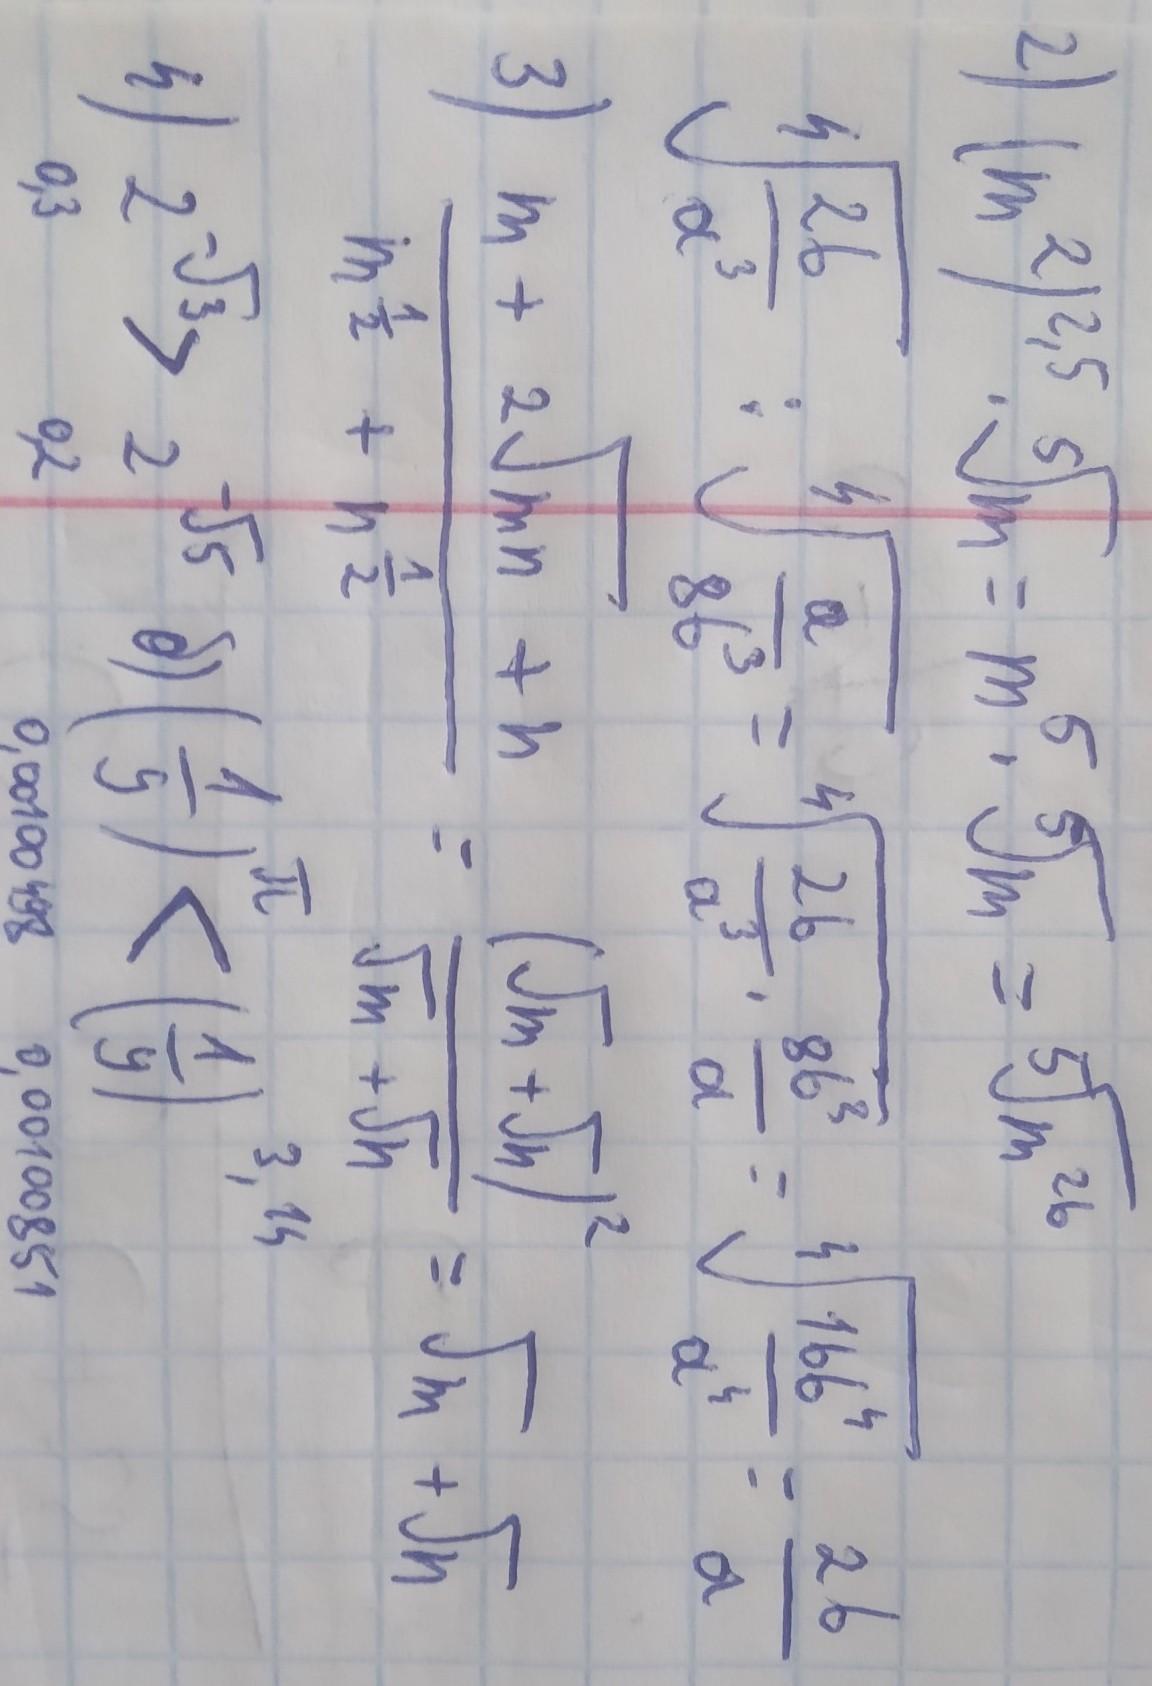 2) (m²)^2,5 · ⁵√m = m⁵ · ⁵√m = ⁵√m²⁶
⁴√(2b/a³) : ⁴√(a/8b³) = ⁴√(2b/a³ · 8b³/a) = ⁴√(16b⁴/a⁴) = 2b/a
3) (m + 2√mn + n)/(m^½ + n^½) = (√m + √n)²/(√m + √n) = √m + √n
4) 2^-√3 > 2^-√5 б) (1/9)^π < (1/9)^3,14
0,3 0,2 0,00100498 0,00100851